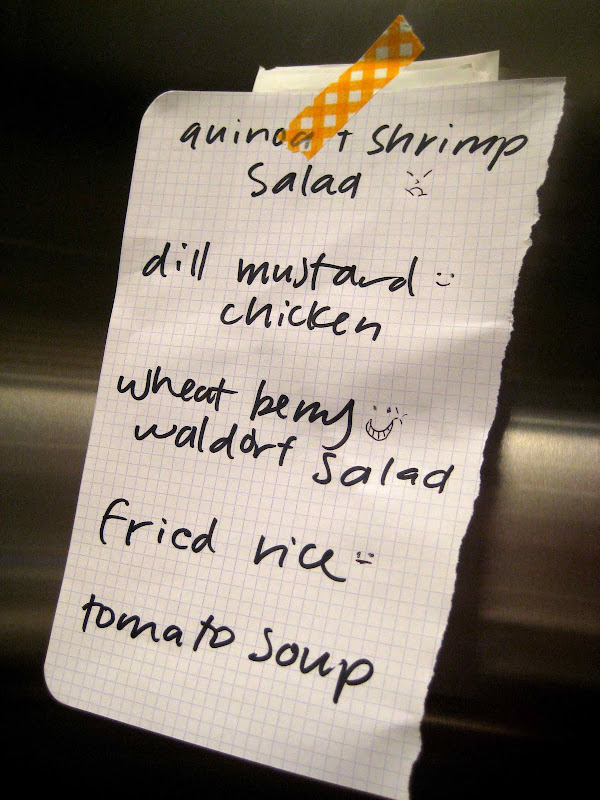 quinoa + shrimp
salad
dill mustard
chicken
wheat berry
waldorf salad
fried rice
tomato soup